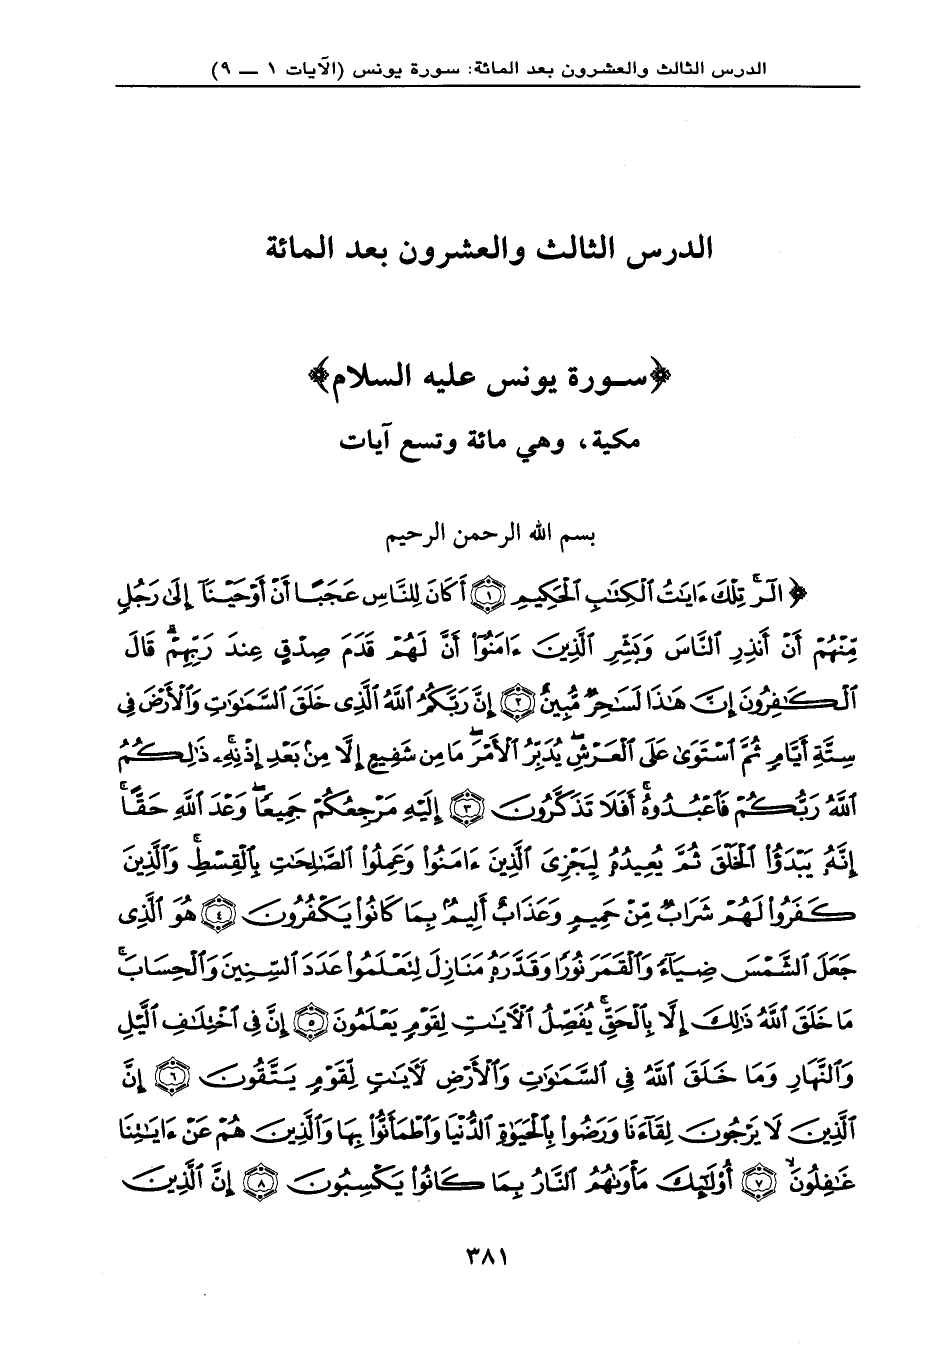 الدرس الثالث والعشرون بعد المائة: سورة يونس (الآيات ١ — ٩)
الدرس الثالث والعشرون بعد المائة
﴿سورة يونس عليه السلام﴾
مكية، وهي مائة وتسع آيات
بسم الله الرحمن الرحيم
﴿ الٓرۚ تِلْكَ ءَايَٰتُ ٱلْكِتَٰبِ ٱلْحَكِيمِ ۝١ أَكَانَ لِلنَّاسِ عَجَبًا أَنْ أَوْحَيْنَآ إِلَىٰ رَجُلٍ
مِّنْهُمْ أَنْ أَنذِرِ ٱلنَّاسَ وَبَشِّرِ ٱلَّذِينَ ءَامَنُوٓا۟ أَنَّ لَهُمْ قَدَمَ صِدْقٍ عِندَ رَبِّهِمْۗ قَالَ
ٱلْكَٰفِرُونَ إِنَّ هَٰذَا لَسَٰحِرٌ مُّبِينٌ ۝٢ إِنَّ رَبَّكُمُ ٱللَّهُ ٱلَّذِى خَلَقَ ٱلسَّمَٰوَٰتِ وَٱلْأَرْضَ فِى
سِتَّةِ أَيَّامٍ ثُمَّ ٱسْتَوَىٰ عَلَى ٱلْعَرْشِۖ يُدَبِّرُ ٱلْأَمْرَۖ مَا مِن شَفِيعٍ إِلَّا مِنۢ بَعْدِ إِذْنِهِۦۚ ذَٰلِكُمُ
ٱللَّهُ رَبُّكُمْ فَٱعْبُدُوهُۚ أَفَلَا تَذَكَّرُونَ ۝٣ إِلَيْهِ مَرْجِعُكُمْ جَمِيعًاۖ وَعْدَ ٱللَّهِ حَقًّاۚ
إِنَّهُۥ يَبْدَؤُا۟ ٱلْخَلْقَ ثُمَّ يُعِيدُهُۥ لِيَجْزِىَ ٱلَّذِينَ ءَامَنُوا۟ وَعَمِلُوا۟ ٱلصَّٰلِحَٰتِ بِٱلْقِسْطِۚ وَٱلَّذِينَ
كَفَرُوا۟ لَهُمْ شَرَابٌ مِّنْ حَمِيمٍ وَعَذَابٌ أَلِيمٌۢ بِمَا كَانُوا۟ يَكْفُرُونَ ۝٤ هُوَ ٱلَّذِى
جَعَلَ ٱلشَّمْسَ ضِيَآءً وَٱلْقَمَرَ نُورًا وَقَدَّرَهُۥ مَنَازِلَ لِتَعْلَمُوا۟ عَدَدَ ٱلسِّنِينَ وَٱلْحِسَابَۚ
مَا خَلَقَ ٱللَّهُ ذَٰلِكَ إِلَّا بِٱلْحَقِّۚ يُفَصِّلُ ٱلْآيَٰتِ لِقَوْمٍ يَعْلَمُونَ ۝٥ إِنَّ فِى ٱخْتِلَٰفِ ٱلَّيْلِ
وَٱلنَّهَارِ وَمَا خَلَقَ ٱللَّهُ فِى ٱلسَّمَٰوَٰتِ وَٱلْأَرْضِ لَآيَٰتٍ لِّقَوْمٍ يَتَّقُونَ ۝٦ إِنَّ
ٱلَّذِينَ لَا يَرْجُونَ لِقَآءَنَا وَرَضُوا۟ بِٱلْحَيَوٰةِ ٱلدُّنْيَا وَٱطْمَأَنُّوا۟ بِهَا وَٱلَّذِينَ هُمْ عَنْ ءَايَٰتِنَا
غَٰفِلُونَۙ ۝٧ أُو۟لَٰٓئِكَ مَأْوَىٰهُمُ ٱلنَّارُ بِمَا كَانُوا۟ يَكْسِبُونَ ۝٨ إِنَّ ٱلَّذِينَ
٣٨١